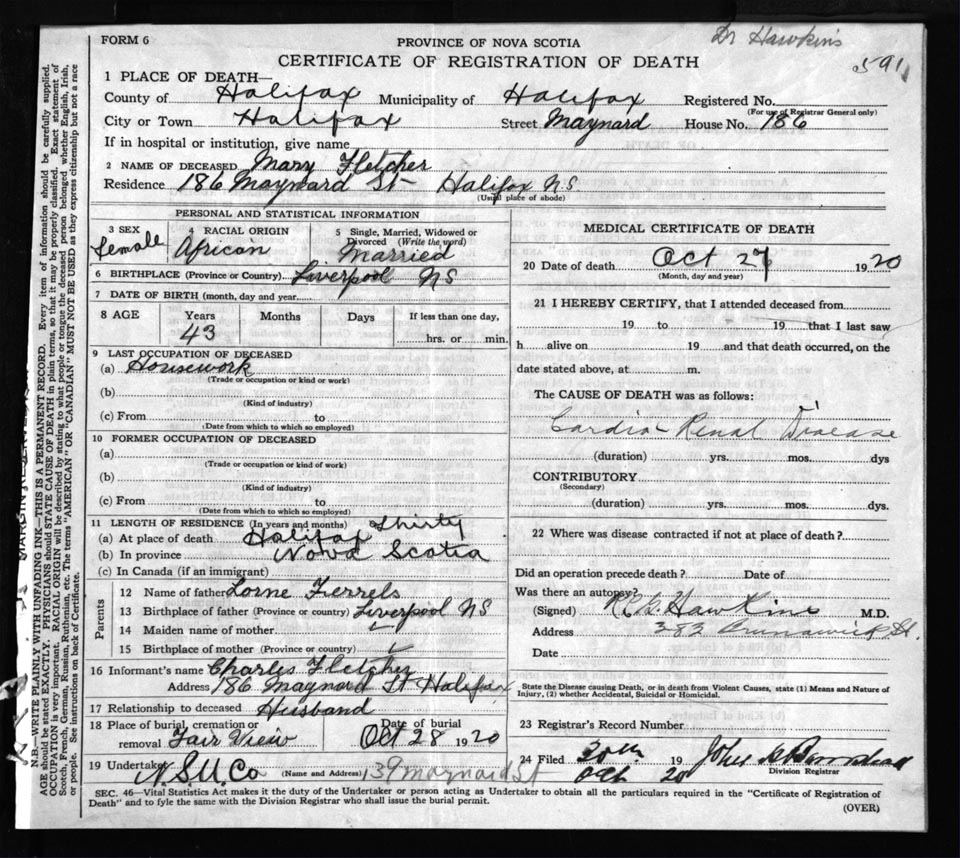 Dr Hawkins
591
FORM 6
PROVINCE OF NOVA SCOTIA
CERTIFICATE OF REGISTRATION OF DEATH
1 PLACE OF DEATH—
County of Halifax Municipality of Halifax Registered No.
(For use of Registrar General only)
City or Town Halifax Street Maynard House No. 186
If in hospital or institution, give name
2 NAME OF DECEASED Mary Fletcher
Residence 186 Maynard St - Halifax N.S.
(Usual place of abode)
PERSONAL AND STATISTICAL INFORMATION
3 SEX 4 RACIAL ORIGIN 5 Single, Married, Widowed or
Divorced (Write the word)
Female African Married
6 BIRTHPLACE (Province or Country) Liverpool NS
7 DATE OF BIRTH (month, day and year)
8 AGE Years Months Days If less than one day,
43 hrs. or min.
9 LAST OCCUPATION OF DECEASED
(a) Housework
(Trade or occupation or kind or work)
(b)
(Kind of industry)
(c) From to
(Date from which to which so employed)
10 FORMER OCCUPATION OF DECEASED
(a)
(Trade or occupation or kind of work)
(b)
(Kind of industry)
(c) From to
(Date from which to which so employed)
11 LENGTH OF RESIDENCE (In years and months) Thirty
(a) At place of death Halifax
(b) In province Nova Scotia
(c) In Canada (if an immigrant)
Parents
12 Name of father Lorne
13 Birthplace of father (Province or country) Liverpool NS
14 Maiden name of mother
15 Birthplace of mother (Province or country)
16 Informant's name Charles Fletcher
Address 186 Maynard St Halifax
17 Relationship to deceased Husband
18 Place of burial, cremation or Date of burial
removal Fair View Oct 28 1920
19 Undertaker N.S.U.Co (Name and Address) 139 Maynard St
MEDICAL CERTIFICATE OF DEATH
20 Date of death Oct 27 1920
(Month, day and year)
21 I HEREBY CERTIFY, that I attended deceased from
19 to 19 that I last saw
h alive on 19 and that death occurred, on the
date stated above, at m.
The CAUSE OF DEATH was as follows:
Cardio Renal Disease
(duration) yrs. mos. dys
CONTRIBUTORY
(Secondary)
(duration) yrs. mos. dys.
22 Where was disease contracted if not at place of death?
Did an operation precede death? Date of
Was there an autopsy?
(Signed) Hawkins M.D.
Address 382 Brunswick St.
Date
State the Disease causing Death, or in death from Violent Causes, state (1) Means and Nature of
Injury, (2) whether Accidental, Suicidal or Homicidal.
23 Registrar's Record Number
24 Filed 30th 19 John
Oct 20 Division Registrar
SEC. 46—Vital Statistics Act makes it the duty of the Undertaker or person acting as Undertaker to obtain all the particulars required in the "Certificate of Registration of
Death" and to fyle the same with the Division Registrar who shall issue the burial permit.
(OVER)
N.B.—WRITE PLAINLY WITH UNFADING INK—THIS IS A PERMANENT RECORD. Every item of information should be carefully supplied.
AGE should be stated EXACTLY. PHYSICIANS should STATE CAUSE OF DEATH in plain terms, so that it may be properly classified. Exact statement of
OCCUPATION is very important. RACIAL ORIGIN will be described by stating to what people or tongue the deceased person belonged whether English, Irish,
Scotch, French, German, Russian, Ruthenian, etc. The terms "AMERICAN" or "CANADIAN" MUST NOT BE USED as they express citizenship but not a race
or people. See instructions on back of Certificate.